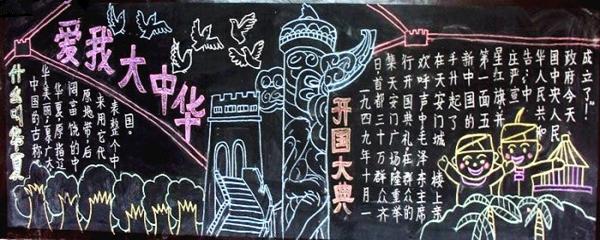 爱我大中华
什么叫华夏
中国的古称
华美丽;夏,广大
华夏,原指辽
阔富饶的中
原地带,后
来用它代
表整个中
国。
开国大典
一九四九年十月一
日,首都三十万群众齐
集天安门广场隆重举
行开国典礼,在群众的
欢呼声中,毛泽东主席
在天安门城楼上亲
手升起了
新中国的
第一面五
星红旗,并
庄严宣
告:中
华人民共和
国中央人民
政府今天
成立了!